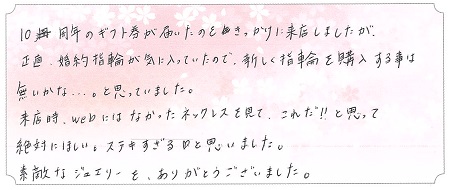 10周年のギフト券が届いたのをきっかけに来店しましたが、
正直、婚約指輪が気に入っていたので、新しく指輪を購入する事は
無いかな...。と思っていました。
来店時、webにはなかったネックレスを見て、これだ!!と思って
絶対にほしい。ステキすぎる□と思いました。
素敵なジュエリーを、ありがとうございました。